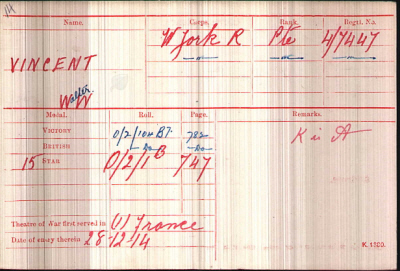 Name. Corps. Rank. Regtl. No.
VINCENT W York R Pte 4/7447
Walter
W
Medal. Roll. Page. Remarks.
VICTORY 0/2/104 BT. 782
BRITISH -Do- -Do- K in A
15 STAR 0/2/1B 747
Theatre of War first served in (1) France
Date of entry therein 28-12-14
K. 1380.